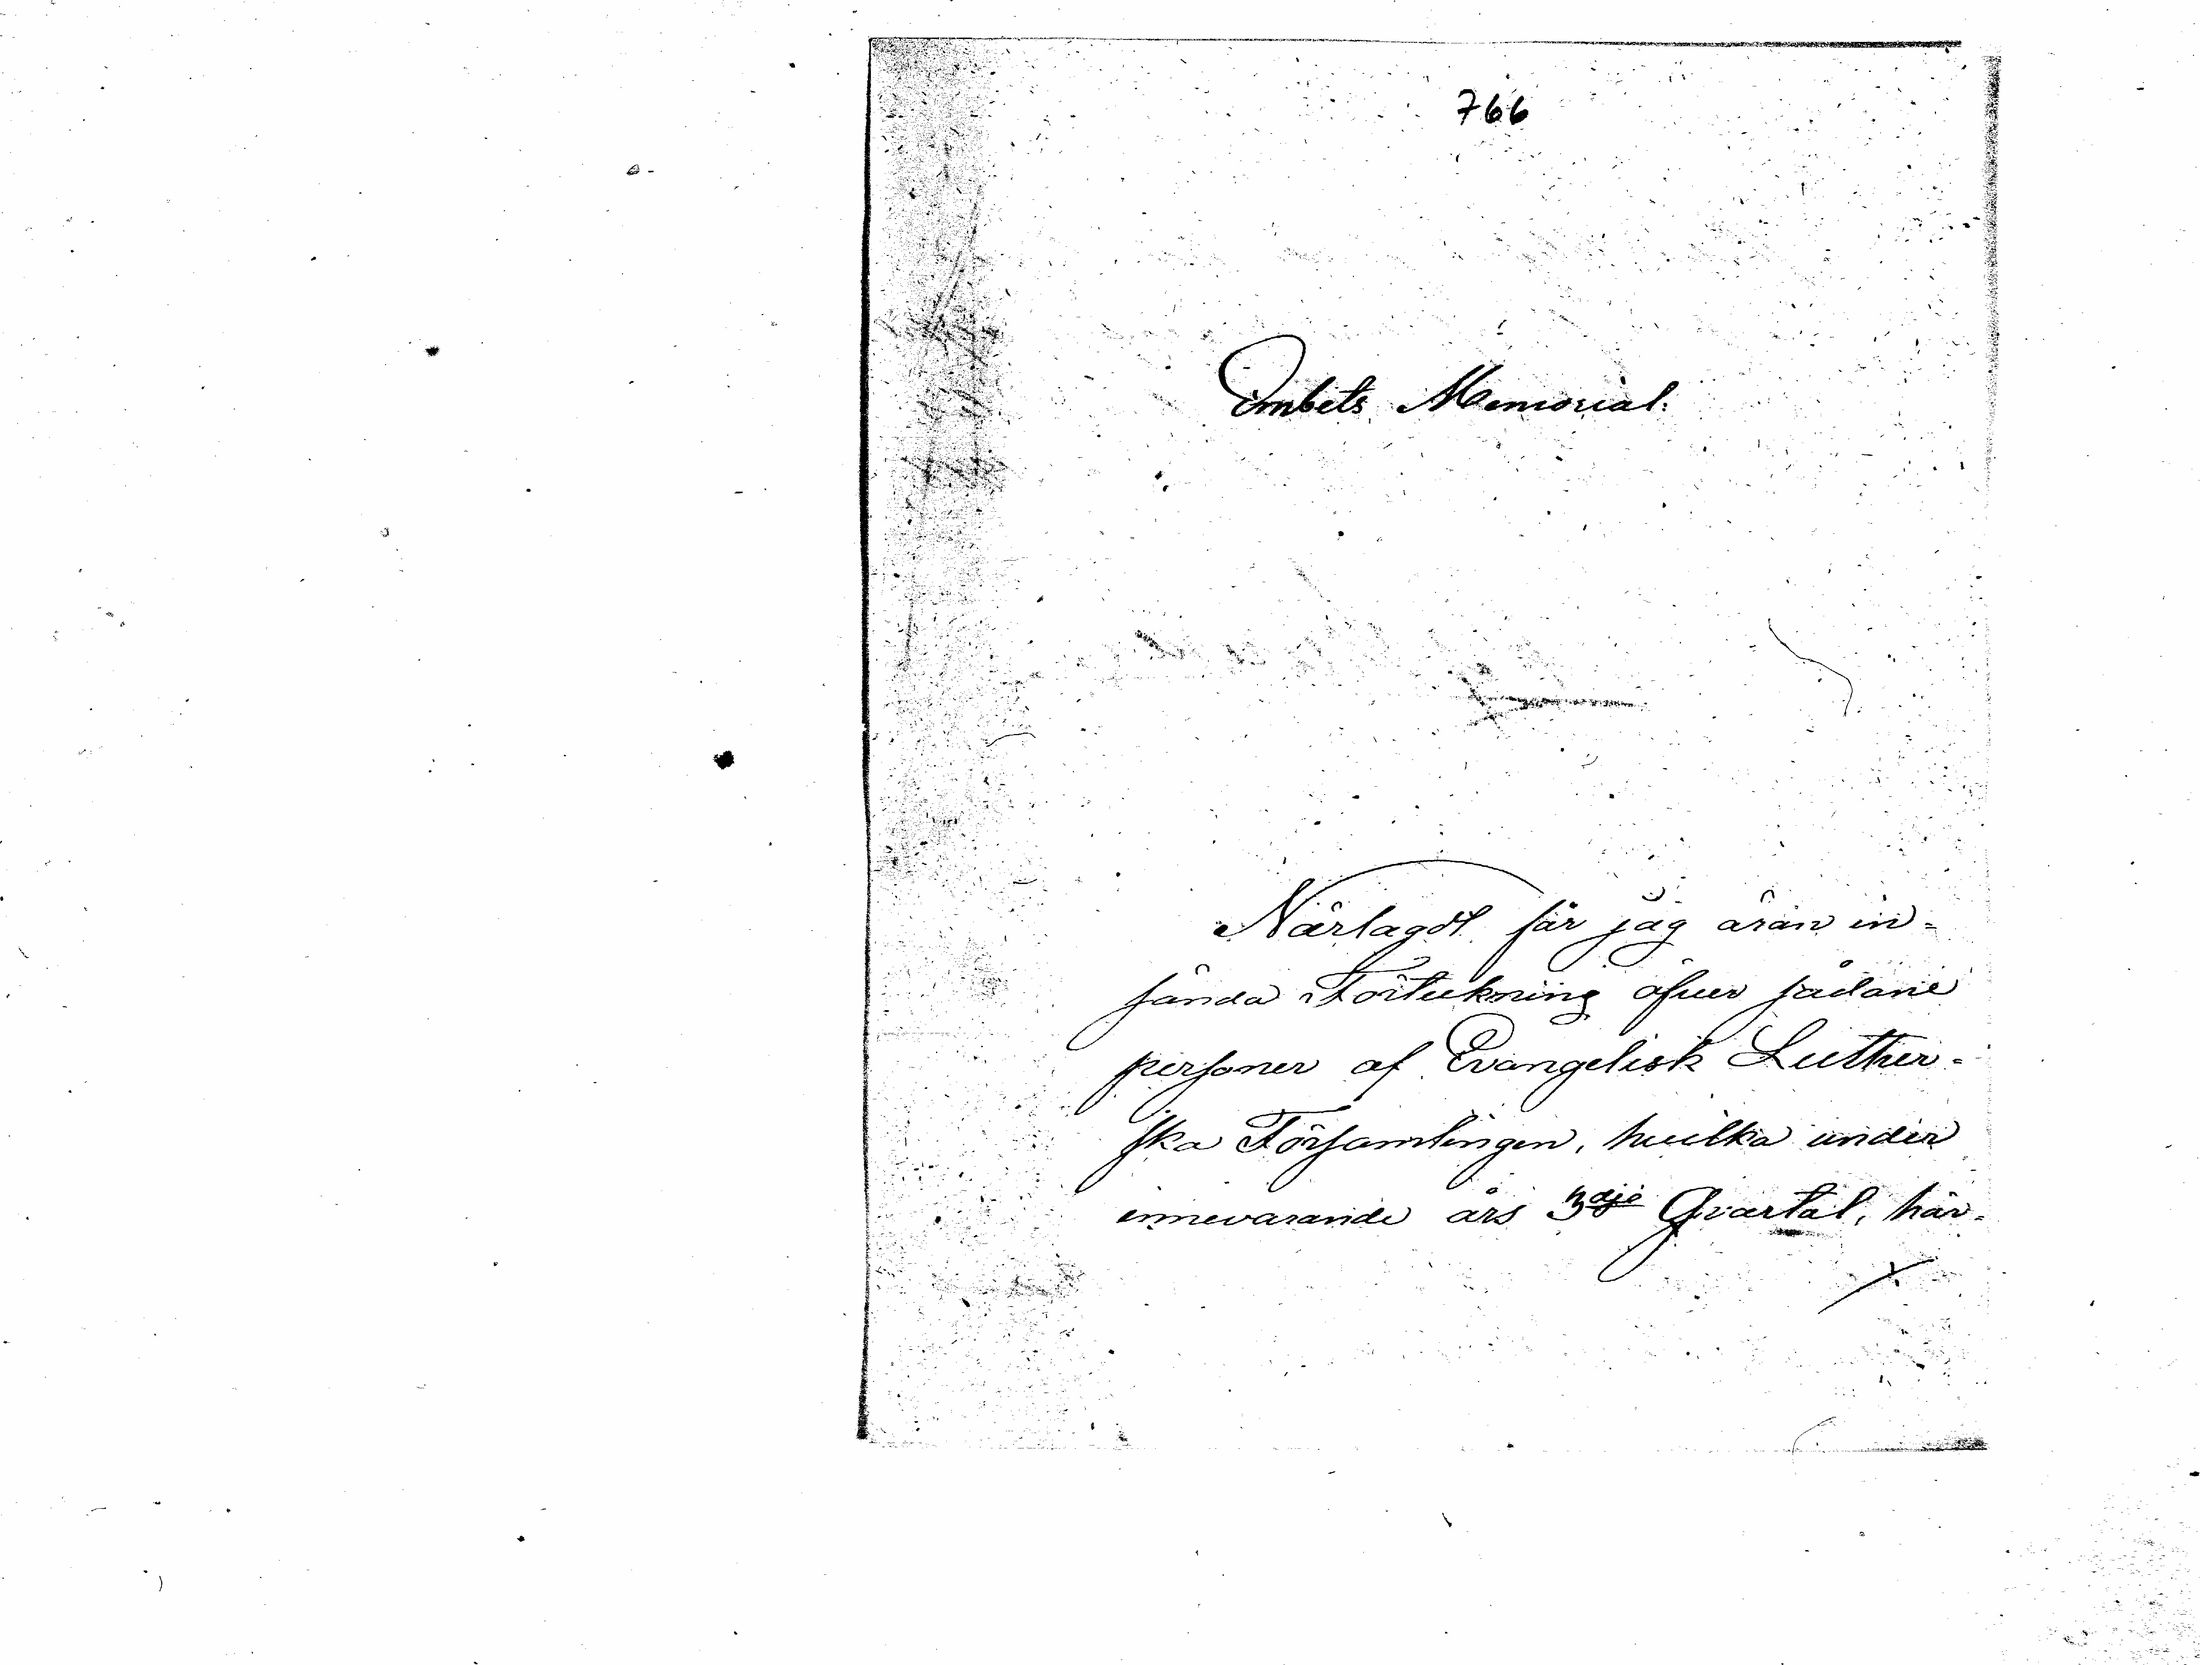 766
Embets Memorial.
Närlagdt får jag äran in-
sända Förteckning öfver sådane
personer af Evangelisk Luther-
ska Församlingen, hvilka under
innevarande års 3dje Qvartal, här-